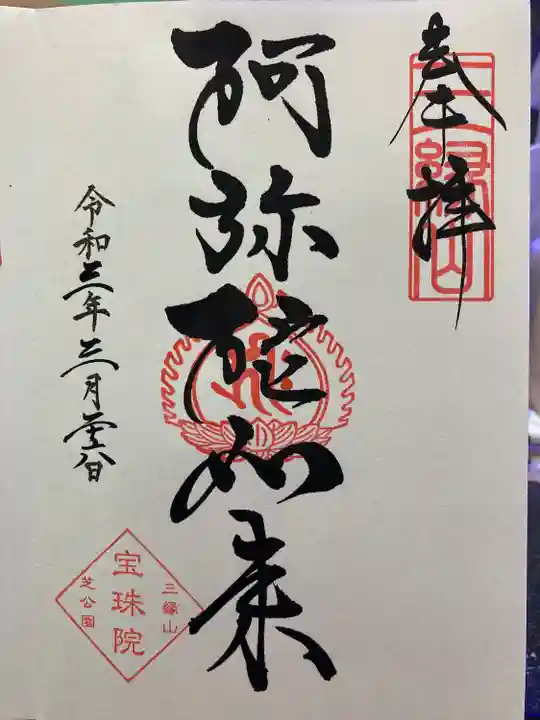 奉拝
三縁山
阿弥陀如来
令和三年三月
三縁山
宝珠院
芝公園